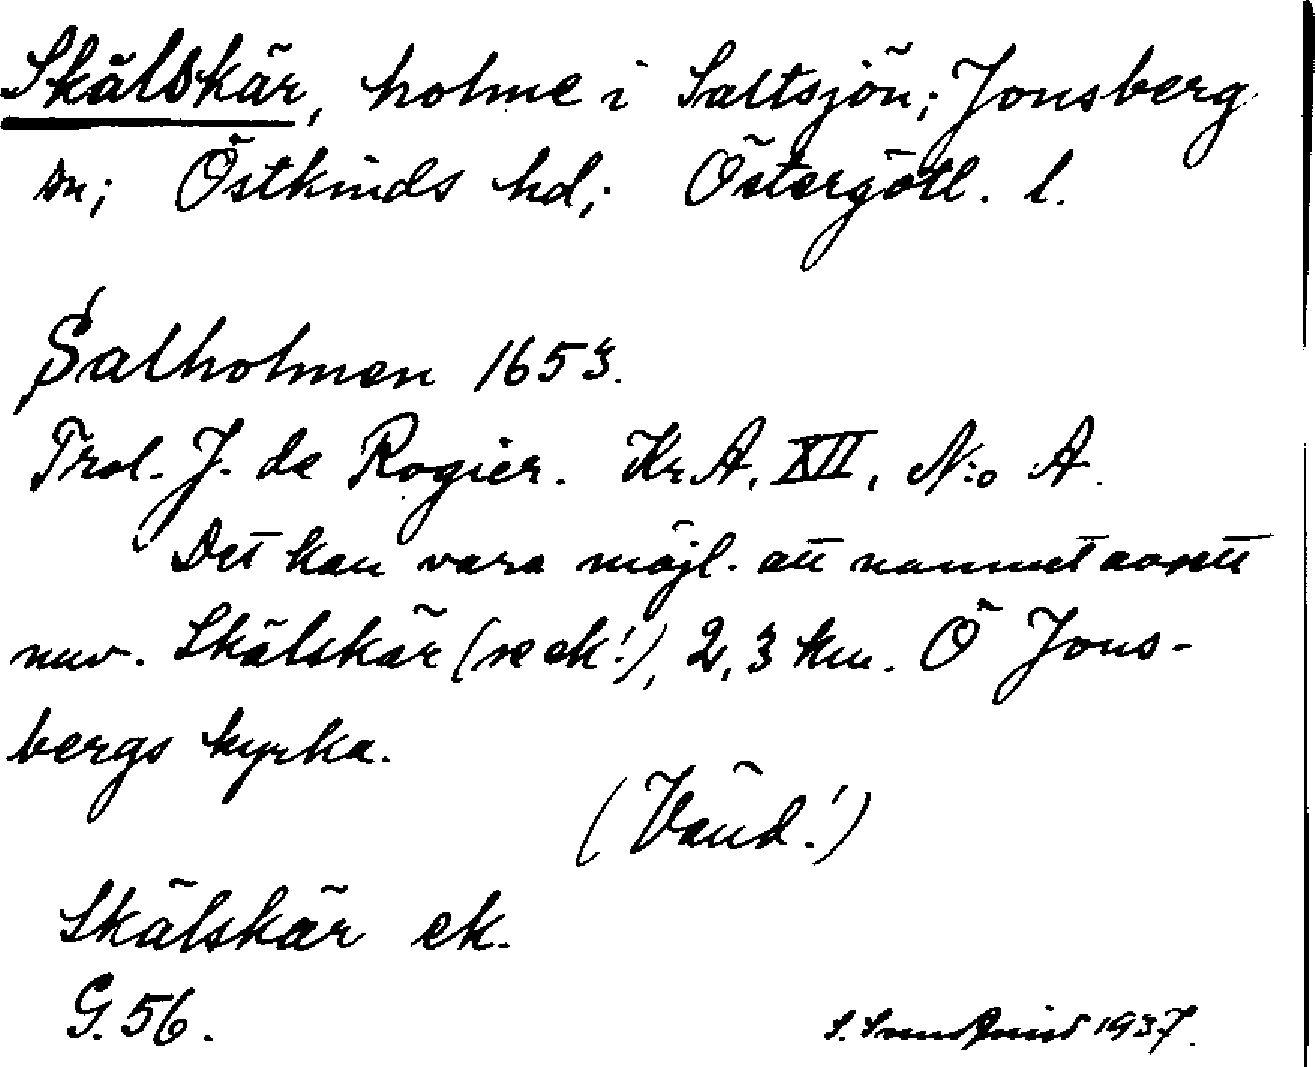 Skälskär, holme i Saltsjön; Jonsberg
sn; Östkinds hd; Östergötl. l.
Salholmen 1653.
Trol. J. de Rogier. Kr. A. XII, N:o A.
Det kan vara möjl. att namnet avsett
nuv. Skälskär (se ek!), 2,3 km. Ö Jons-
bergs kyrka.
(Vänd!)
Skälskär ek.
G. 56.
1937.